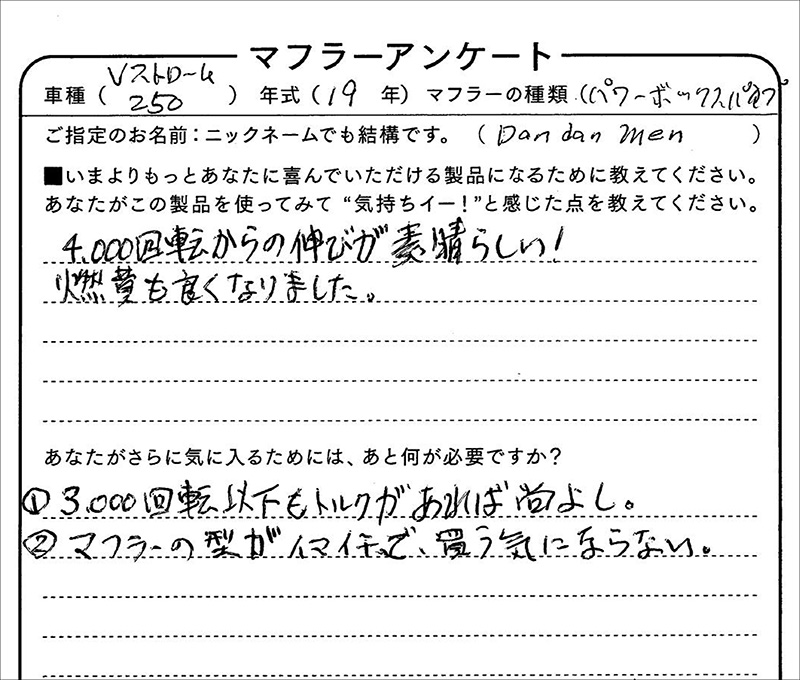 マフラーアンケート
車種（Vストローム250） 年式（19 年）マフラーの種類（パワーボックスパイプ
ご指定のお名前：ニックネームでも結構です。（Dan dan men ）
■いまよりもっとあなたに喜んでいただける製品になるために教えてください。
あなたがこの製品を使ってみて “気持ちイー！”と感じた点を教えてください。
4.000回転からの伸びが素晴らしい！
燃費も良くなりました。
あなたがさらに気に入るためには、あと何が必要ですか？
① 3.000回転以下もトルクがあれば尚よし。
② マフラーの型がイマイチで、買う気にならない。